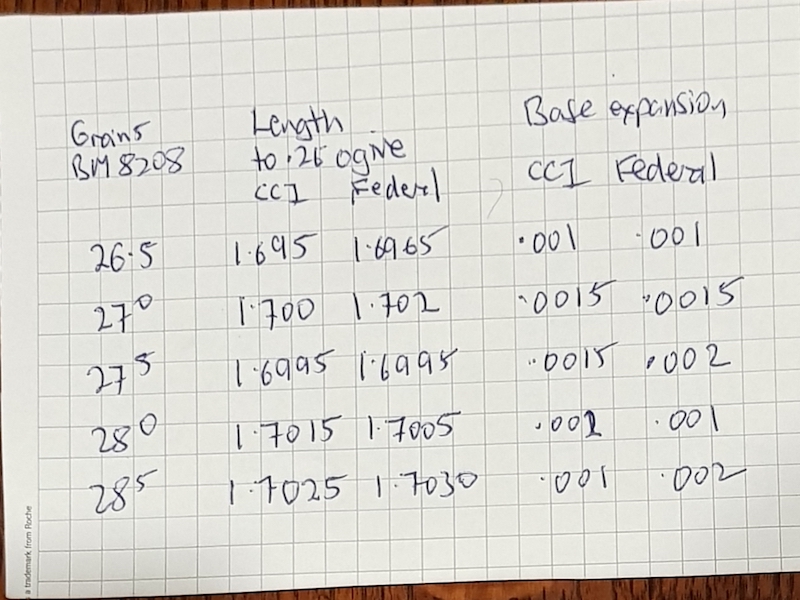 Grains
BM 8208
Length
to .25 ogive
CCI Federal
Base expansion
CCI Federal
26.5 1.695 1.6965 .001 .001
27⁰ 1.700 1.702 .0015 .0015
27⁵ 1.6995 1.6995 .0015 .002
28⁰ 1.7015 1.7005 .001 .001
28⁵ 1.7025 1.7030 .001 .002
a trademark from Roche